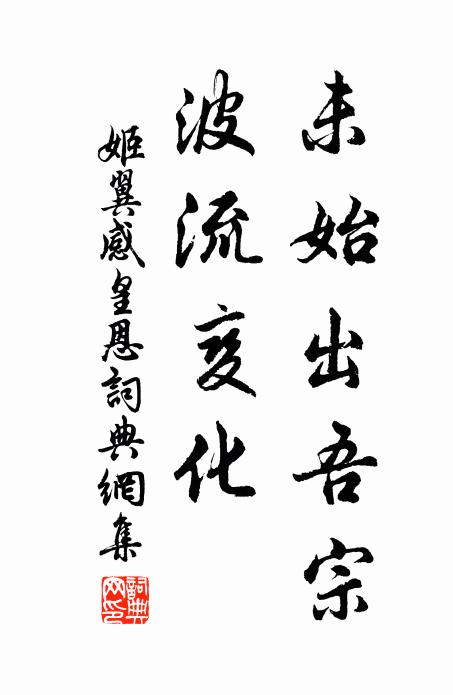 未始出吾宗
波流变化
姬翼感皇恩詞典網集
詞典
网印